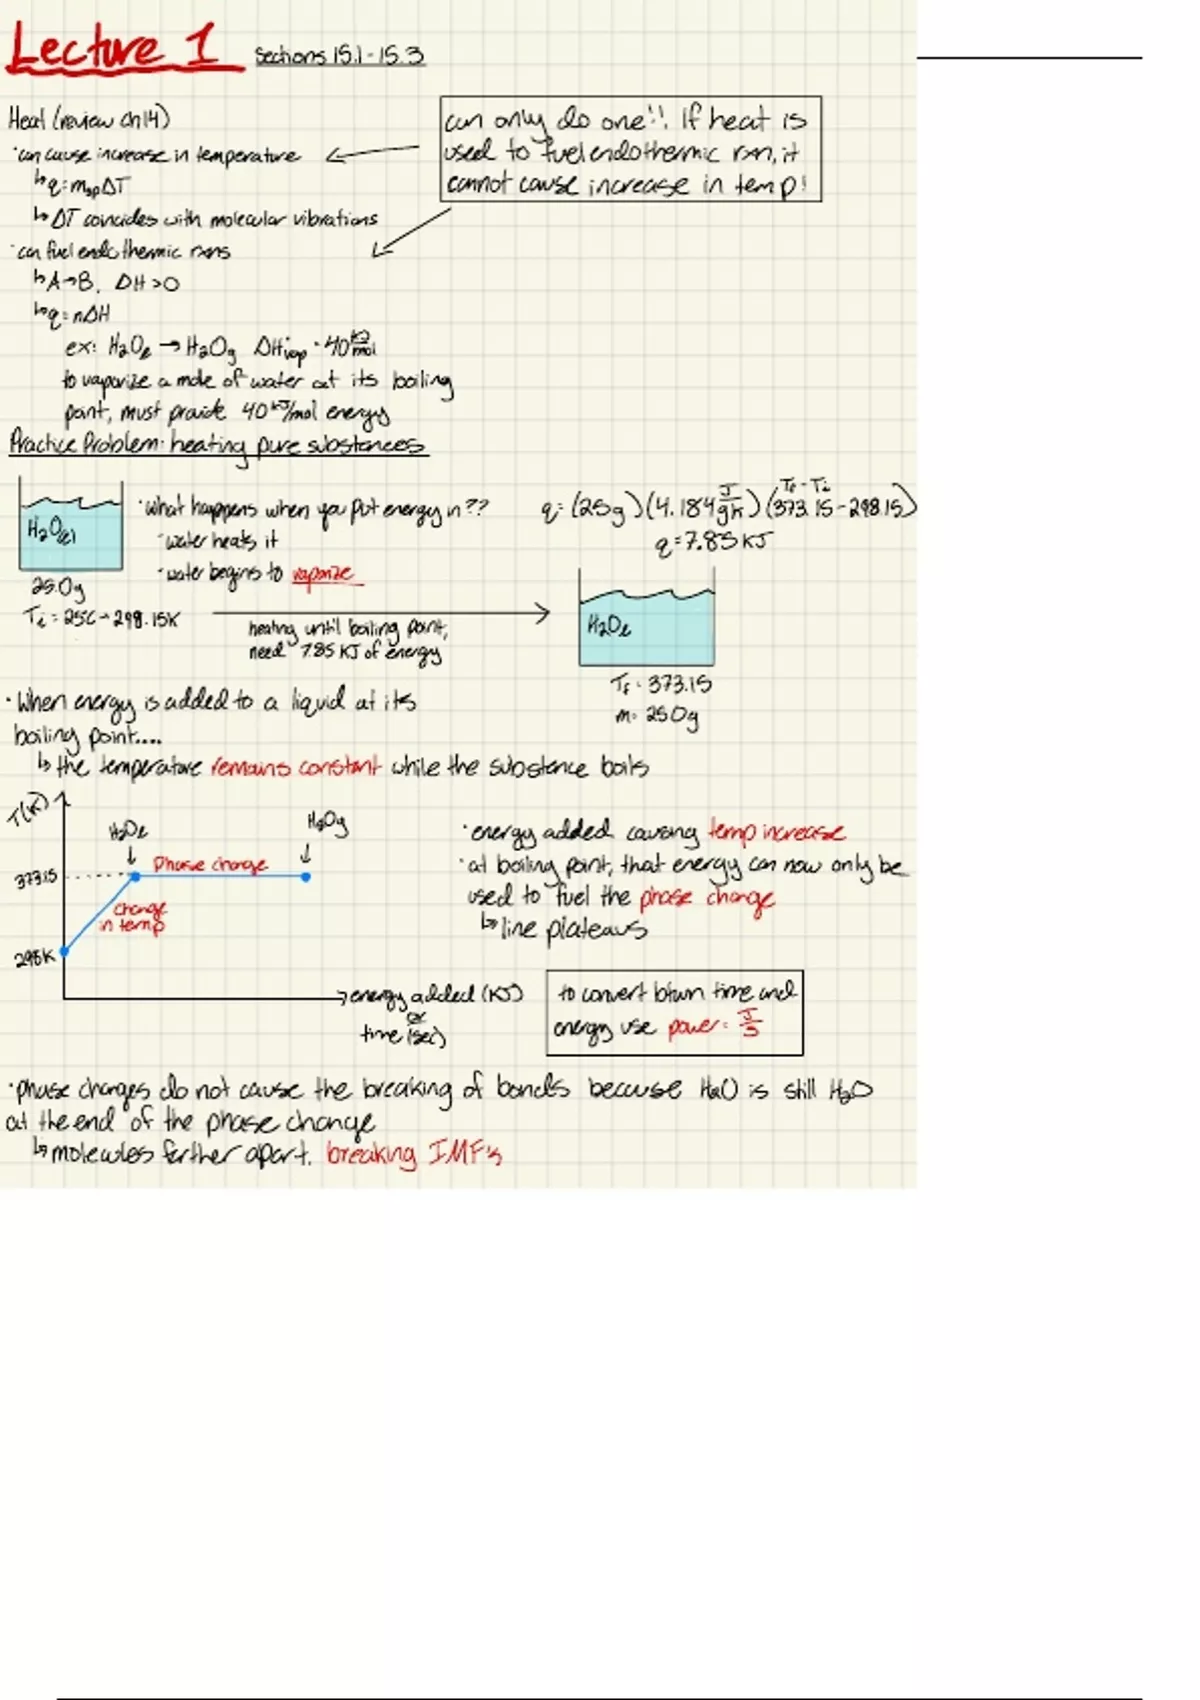 Lecture 1 Sections 15.1-15.3
Heat (review ch 14)
can only do one!! If heat is
used to fuel endothermic rxn, it
cannot cause increase in temp!
· can cause increase in temperature
↳ q=mspΔT
↳ ΔT coincides with molecular vibrations
· can fuel endothermic rxns
↳ A→B, ΔH>0
↳ q=nΔH
ex: H2Ol → H2Og ΔH°vap = 40 kJ/mol
to vaporize a mole of water at its boiling
point, must provide 40 kJ/mol energy
Practice Problem: heating pure substances
H2O(l)
25.0g
Ti = 25C → 298.15K
· what happens when you put energy in??
· water heats it
· water begins to vaporize
heating until boiling point,
need 7.85 KJ of energy
Tf - Ti
q= (25g)(4.184 J/gK)(373.15-298.15)
q=7.85 KJ
H2Ol
Tf = 373.15
m= 25.0g
· When energy is added to a liquid at its
boiling point....
↳ the temperature remains constant while the substance boils
T(K)
H2Ol
H2Og
Phase change
373.15
change
in temp
298K
energy added (KJ)
or
time (sec)
· energy added causing temp increase
· at boiling point, that energy can now only be
used to fuel the phase change
↳ line plateaus
to convert btwn time and
energy use power = J/s
· phase changes do not cause the breaking of bonds because H2O is still H2O
at the end of the phase change
↳ molecules farther apart, breaking IMF's